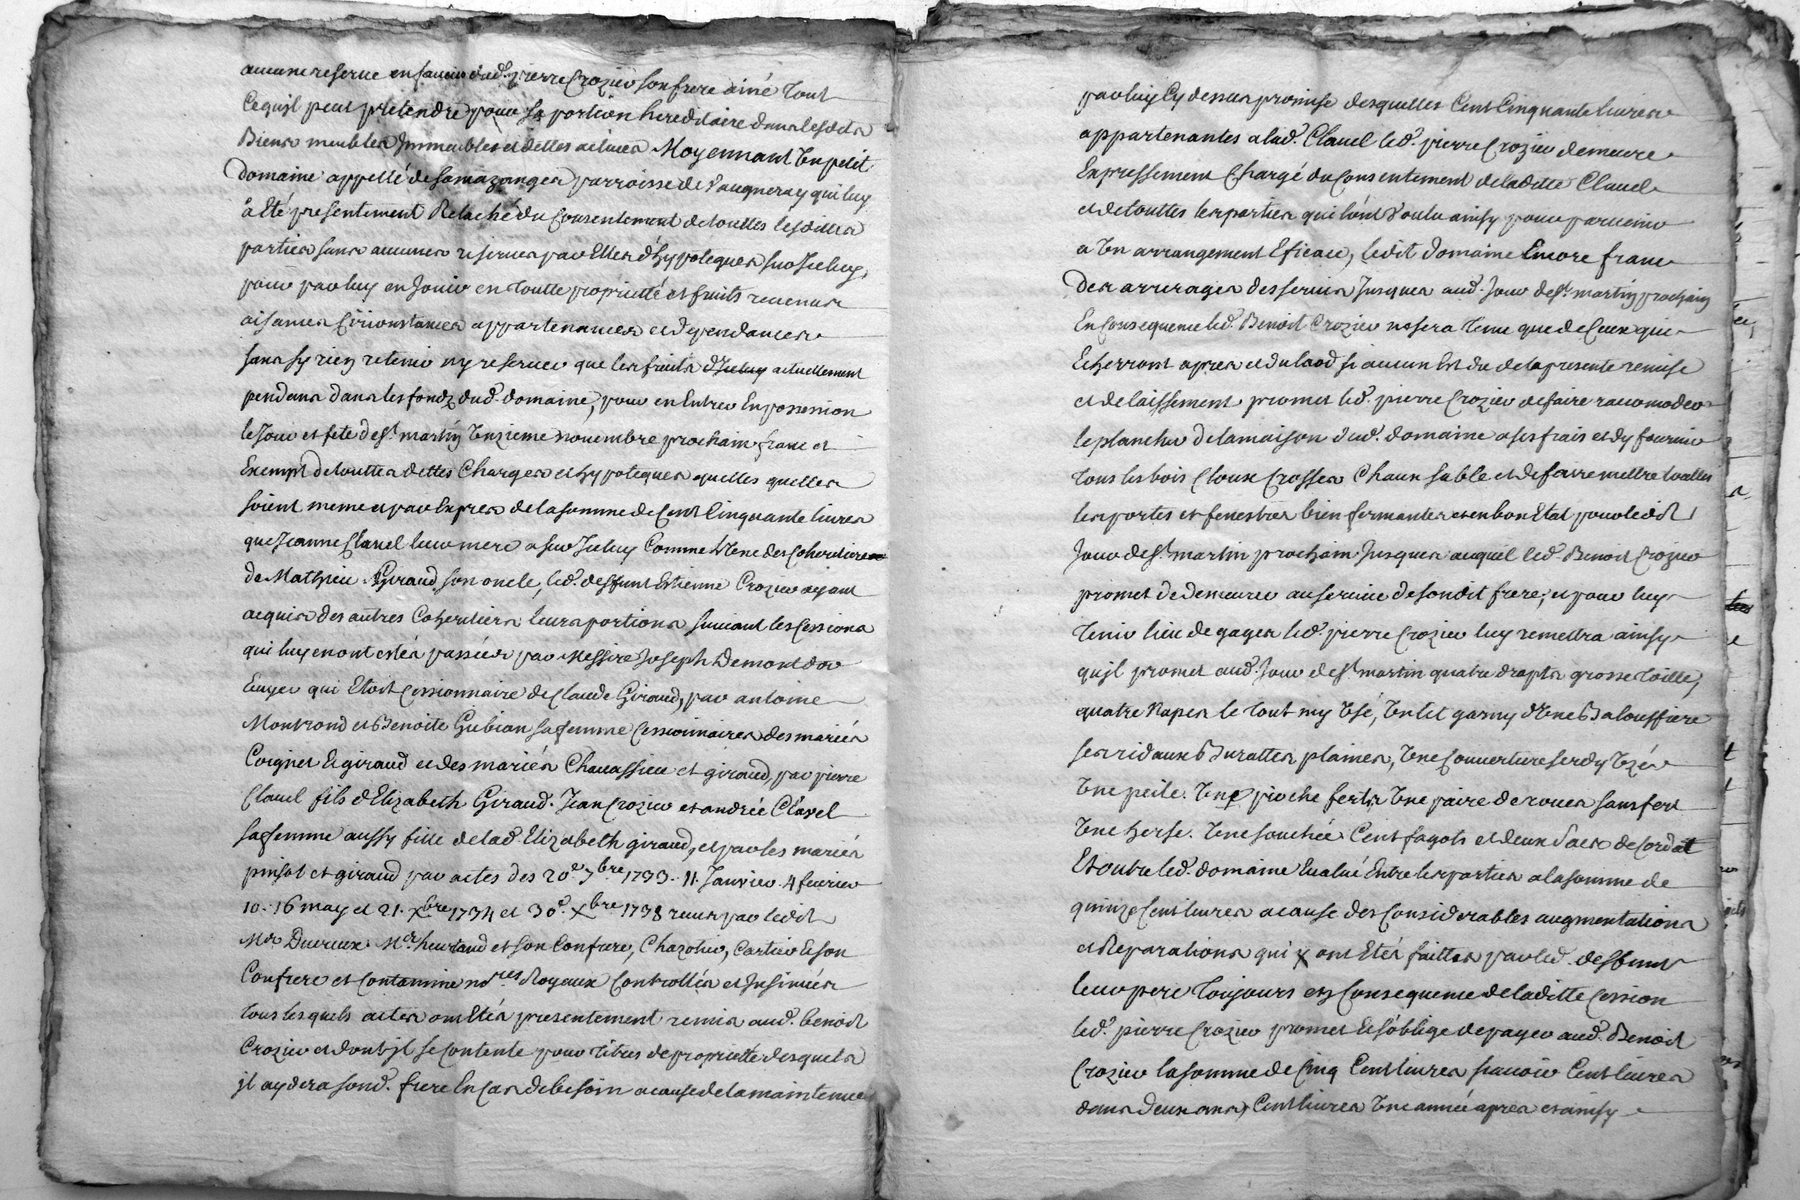 aucune reserve en faveur dud. pierre Crozier son frere ainé tout
Cequjl peut pretendre pour sa portion hereditaire dans lesdits
Biens meubles Jmmeubles et dettes actives Moyennant Un petit
Domaine appellé de parroisse de Vaugneray qui luy
a Eté presentement Relaché du Consentement de touttes lesdittes
parties sans aucunes reserves par Elles d'hypoteques sur Jceluy,
pour par luy en Jouir en toutte proprietté et fruits revenus
aisances Circonstances appartenances et dependances
sans sy rien retenir ny reserver que les fruits d'Jceluy actuellement
pendans dans les fondz dud. domaine, pour en Entrer En possession
le Jour et fete de st. martin Unzieme novembre prochain franc et
Exempt de touttes dettes Charges et hypoteques quelles quelles
soient meme et par Expres de la somme de Cent Cinquante livres
que Jeanne Clavel leur mere a sur Jceluy Comme Une des Coheritieres
de Mathieu Giraud son oncle, led. deffunt Estienne Crozier ayant
acquis des autres Coheritiers leurs portions suivant les Cessions
qui luy en ont etés passées par Messire Joseph Demontdor
Euyer qui Etoit Cessionnaire de Claude Giraud, par antoine
Montrond et Benoite Gubian sa femme Cessionnaires des mariés
Coignet & giraud et des mariés Chavassieu et giraud, par pierre
Clavel fils d'Elizabeth Giraud. Jean Crozier et andrée Clavel
sa femme aussy fille de lad. Elizabeth giraud, et par les mariés
pinsot et giraud par actes des 20e 7bre 1733. 11. Janvier 4 fevrier
10. 16 may et 21. xbre 1734 et 30e. xbre 1738 reçus par ledit
Me et son Confrere, Chazotier, Cartier & son
Confrere et Contamine nores Royaux Controllés et Jnsinués
tous lesquels actes ont Etés presentement remis aud. benoit
Crozier et dont jl se Contente pour titres de proprietté desquels
jl aydera sond. frere En Cas de besoin a cause de la maintenue
par luy Cy dessus promise desquelles Cent Cinquante livres
appartenantes a lad. Clavel led. pierre Crozier demeure
Expressement Chargé du Consentement de laditte Clavel
et de touttes les parties qui l'ont Voulu ainsy pour parvenir
a Un arrangement Eficace, ledit domaine Encore franc
Des arrerages des servis Jusques aud. Jour de st. martin prochain
En Consequence led. Benoit Crozier ne sera tenu que de Ceux qui
Echerront apres et du laod si aucun Est du de la presente remise
et delaissement promet led. pierre Crozier de faire racomoder
le plancher de la maison dud. domaine a ses frais et dy fournir
tous les bois Cloux Crosses Chaux sable et de faire mettre touttes
les portes et fenestres bien fermantes et en bon Etat pour ledit
Jour de st. martin prochain Jusques auquel led. Benoit Crozier
promet de demeurer au service de sondit frere, et pour luy
tenir lieu de gages led. pierre Crozier luy remettra ainsy
qujl promet aud. Jour de st. martin quatre drapts grosse toille,
quatre Napes le tout my Usé, Un lit garny d'Une Baloussiere
ses ridaux Burattes plaines, Une Couverture Uzée
Une peile. Une pioche Une paire de roues sans fert
Une herse. Une Cent fagots et deux sacs de Cordat
Et outre led. domaine Evalué Entre les parties a la somme de
quinze Cent livres a cause des Considerables augmentations
et Reparations qui y ont Etés faittes par led. deffunt
leur pere toujours en Consequence de laditte Cession
led. pierre Crozier promet & s'oblige de payer aud. Benoit
Crozier la somme de Cinq Cent livres sçavoir Cent livres
dans deux ans, Cent livres Une année apres et ainsy